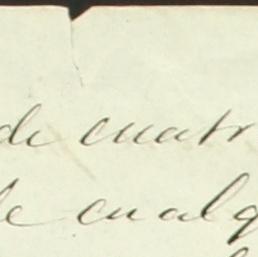 de cuatr
de cualq